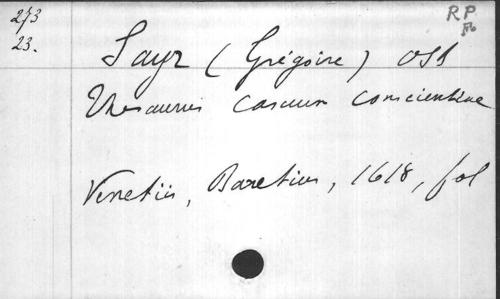 273
23.
RP
Sayr (Grégoire) OSB
Thesaurus casuum conscientiae
Venetiis, Baretius, 1618, fol